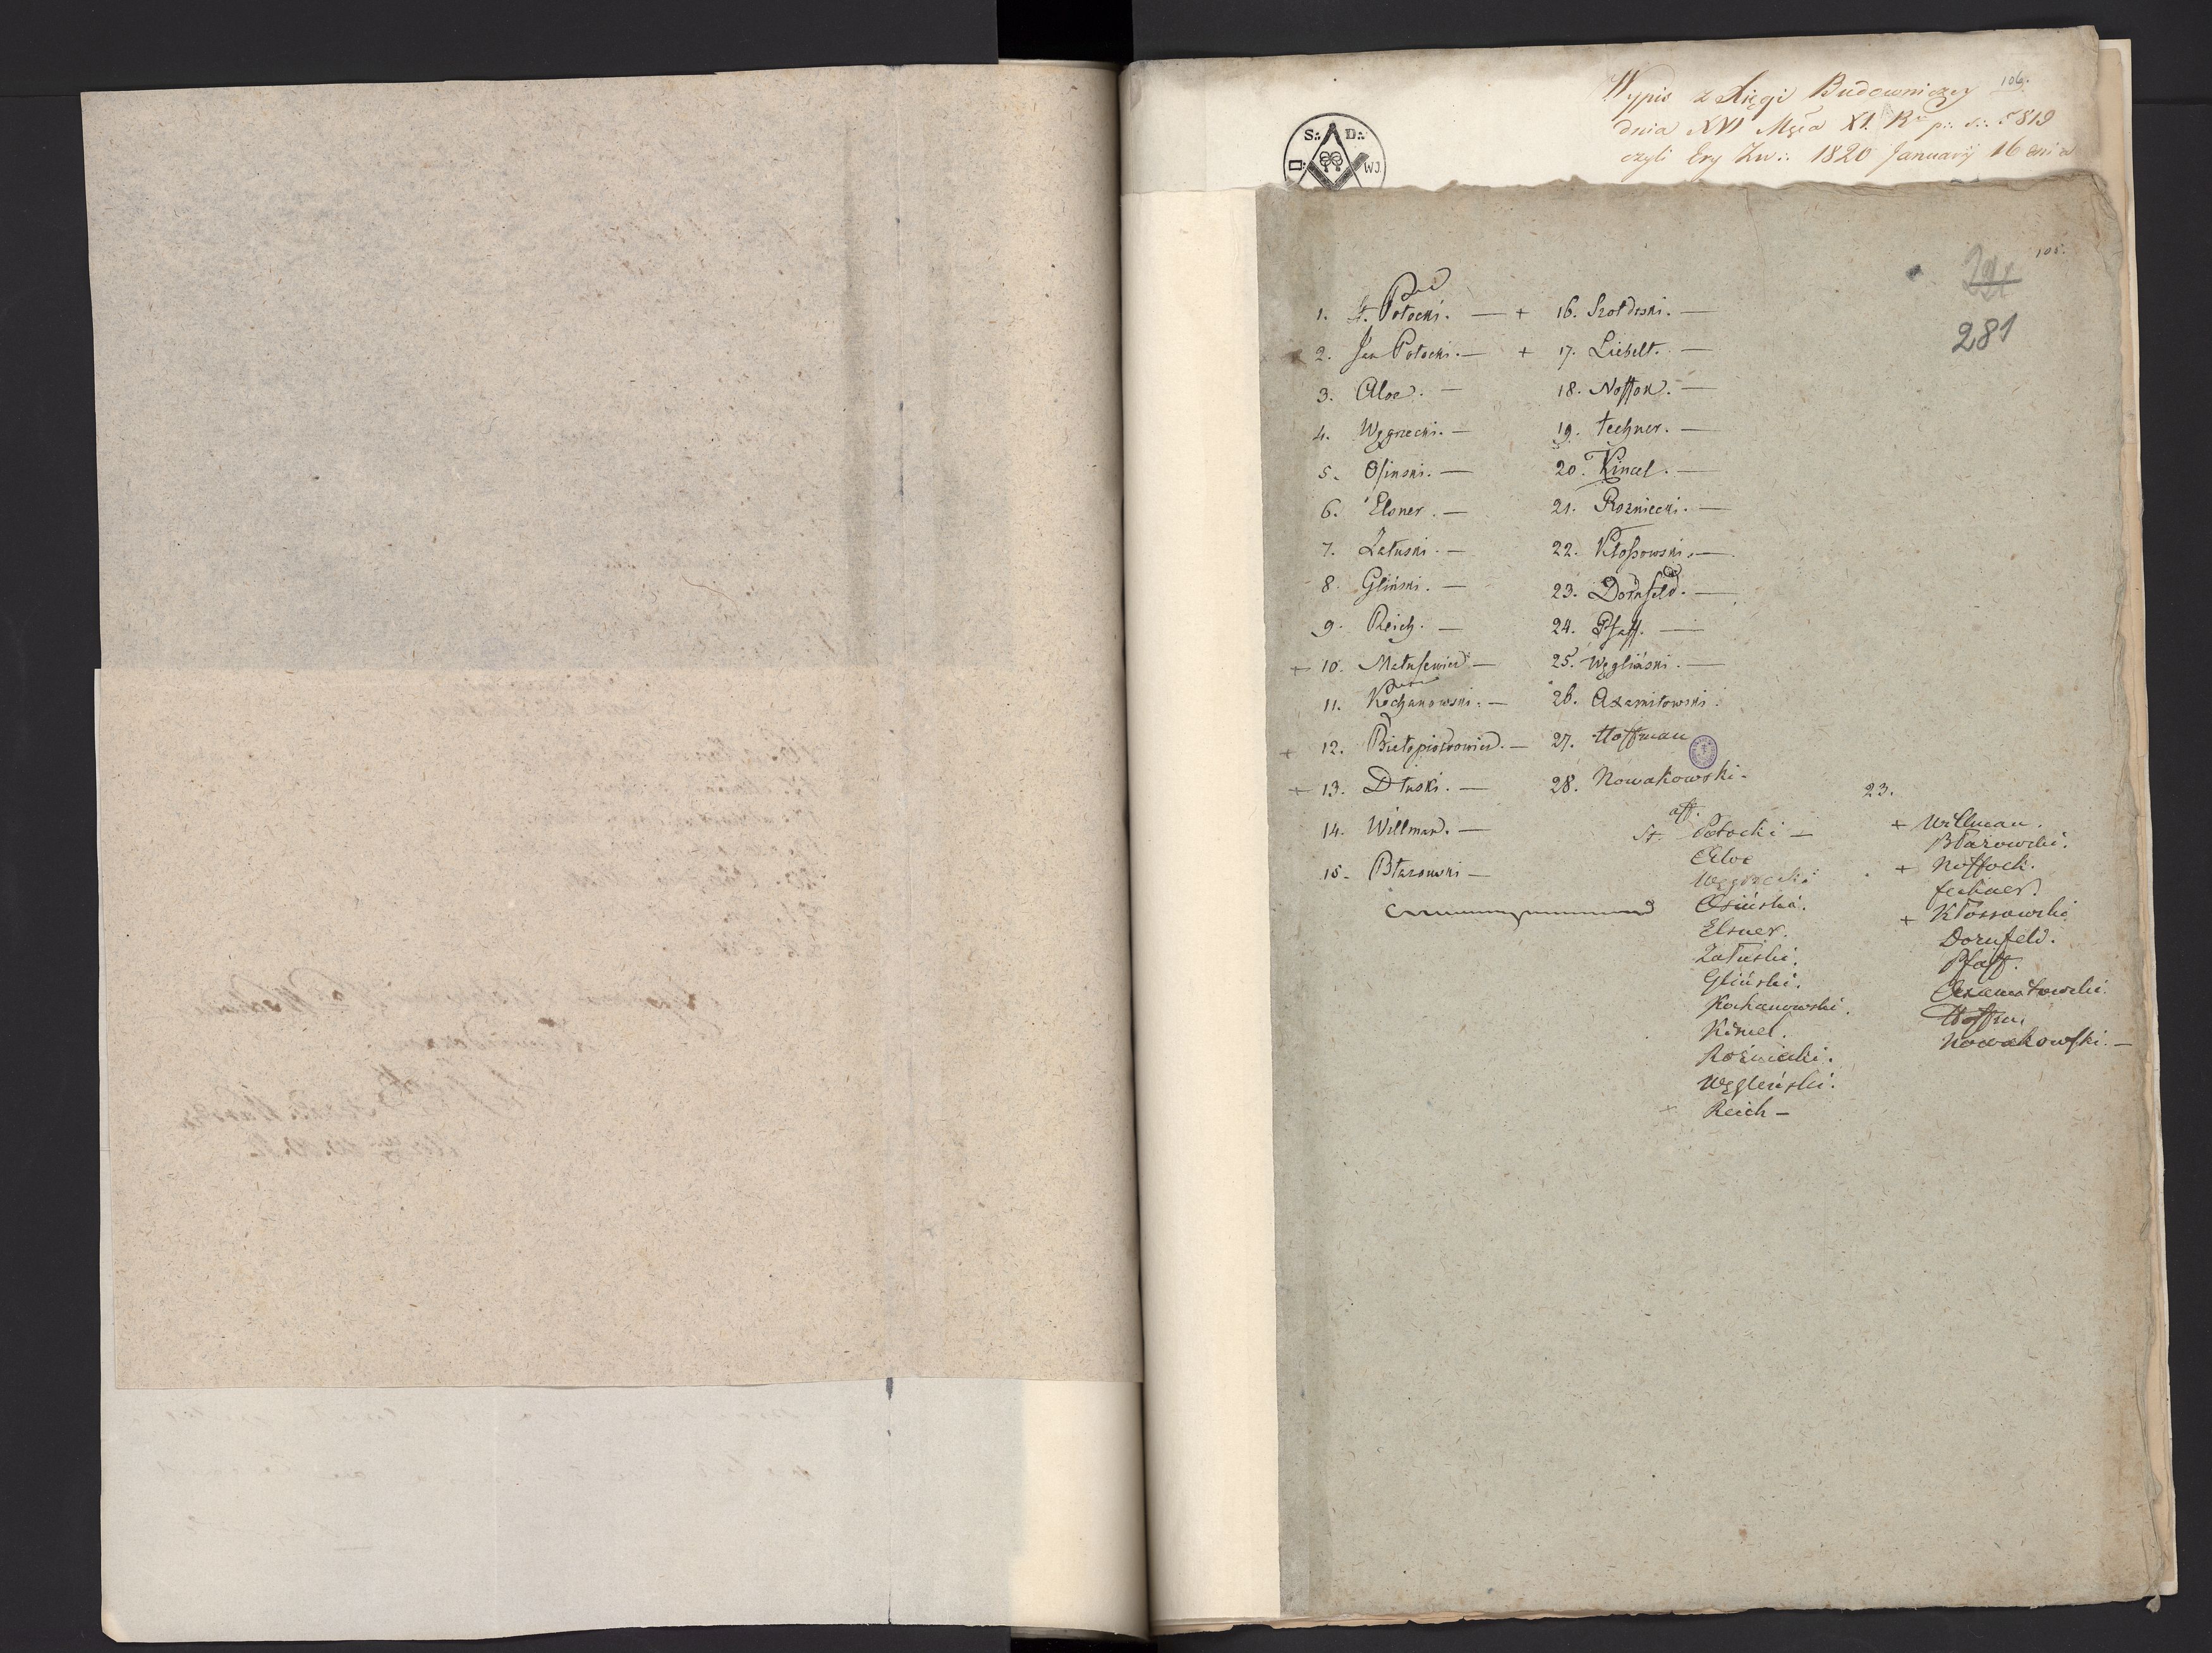 106.
Wypis z Xięgi Budowniczey
dnia XVI Mςca XI. Ru p:. ś:. 5819
czyli Ery Zw:. 1820 January 16 dnia
S:. D:.
WJ.
105.
281
1. St. Potocki. —
2. Jan Potocki. —
3. Aloe. —
4. Węgrzecki. —
5. Osinski. —
6. Elsner. —
7. Załuski. —
8. Gliński. —
9. Reich. —
+ 10. Matusewicz —
11. Kochanowski. —
+ 12. Białopiotrowicz. —
+ 13. Dłuski. —
14. Willman. —
15. Błazowski —
+ 16. Szołdrski. —
+ 17. Liebelt. —
18. Noffok. —
19. Fechner. —
20. Kinel. —
21. Rozniecki. —
22. Kłossowski. —
23. Dornfeld. —
24. Pfaff. —
25. Węgliński. —
26. Axamitowski.
27. Hoffman
28. Nowakowski.
aff.
St. Potocki —
Aloe
Węgrzecki
Osiński.
Elsner.
Załuski.
Gliński.
Kochanowski.
Kinel.
Rożniecki.
Węgleński.
+ Reich —
23.
+ Willman.
Błazowski.
+ Noffock.
Fechner.
+ Kłossowski
Dornfeld.
Pfaff.
Axamitowski.
Hoffm.
Nowakowski. —